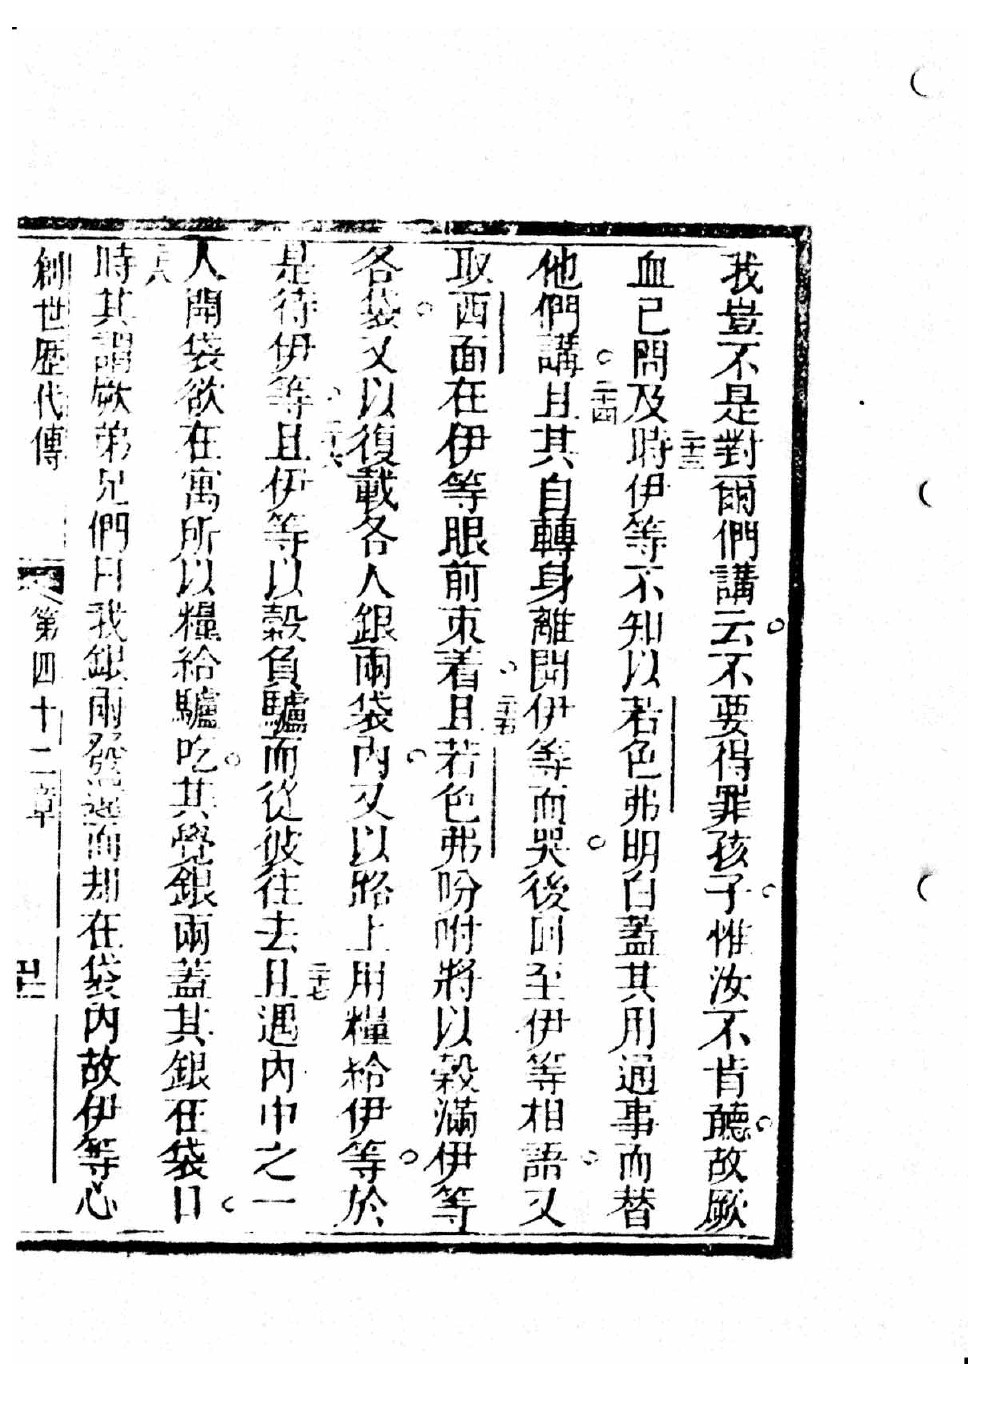 我豈不是對爾們講云不要得罪孩子惟汝不肯聽故厥
血已問及二十三時伊等不知以若色弗明白蓋其用通事而替
他們講二十四且其自轉身離開伊等而哭後回至伊等相語又
取西面在伊等眼前束着二十五且若色弗吩咐將以穀滿伊等
各袋又以復載各人銀兩袋內又以路上用糧給伊等於
是待伊等二十六且伊等以穀負驢而從彼往去二十七且遇內中之一
人開袋欲在寓所以糧給驢吃其覺銀兩蓋其銀在袋口
二十八時其謂厥弟兄們曰我銀兩發還而却在袋內故伊等心
創世歷代傳 第四十二章